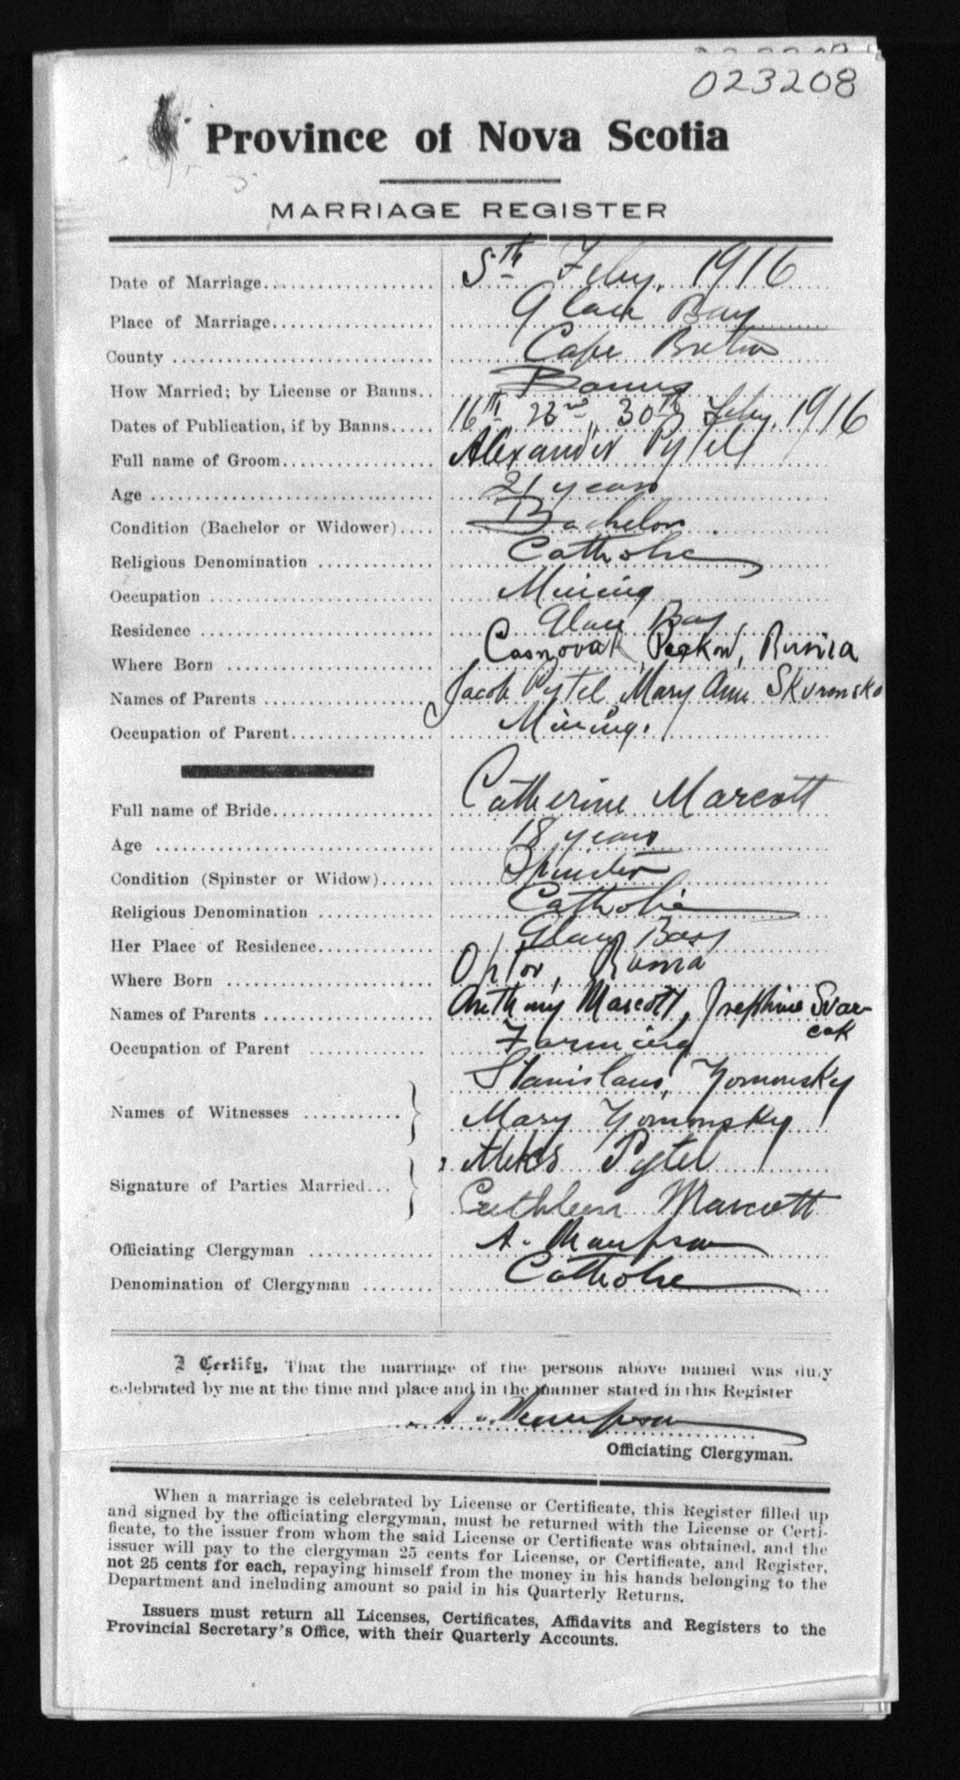 023208
Province of Nova Scotia
MARRIAGE REGISTER
Date of Marriage 5th Feby. 1916
Place of Marriage Glace Bay
County Cape Breton
How Married; by License or Banns Banns
Dates of Publication, if by Banns 16th 23rd 30th Feby. 1916
Full name of Groom Alexander Pytel
Age 21 years
Condition (Bachelor or Widower) Bachelor
Religious Denomination Catholic
Occupation Mining
Residence Glace Bay
Where Born Russia
Names of Parents Jacob Pytel, Mary Ann
Occupation of Parent Mining.
Full name of Bride Catherine Marcott
Age 18 years
Condition (Spinster or Widow) Spinster
Religious Denomination Catholic
Her Place of Residence Glace Bay
Where Born Russia
Names of Parents Anthony Mascott, Josephine Svar-
cek
Occupation of Parent Farming
Names of Witnesses Stanislaus Yomonsky
Mary Yomonsky
Signature of Parties Married Aleks Pytel
Cathleen Marcott
Officiating Clergyman A.
Denomination of Clergyman Catholic
I Certify, That the marriage of the persons above named was duly
celebrated by me at the time and place and in the manner stated in this Register
Officiating Clergyman.
When a marriage is celebrated by License or Certificate, this Register filled up
and signed by the officiating clergyman, must be returned with the License or Certi-
ficate, to the issuer from whom the said License or Certificate was obtained, and the
issuer will pay to the clergyman 25 cents for License, or Certificate, and Register,
not 25 cents for each, repaying himself from the money in his hands belonging to the
Department and including amount so paid in his Quarterly Returns.
Issuers must return all Licenses, Certificates, Affidavits and Registers to the
Provincial Secretary's Office, with their Quarterly Accounts.